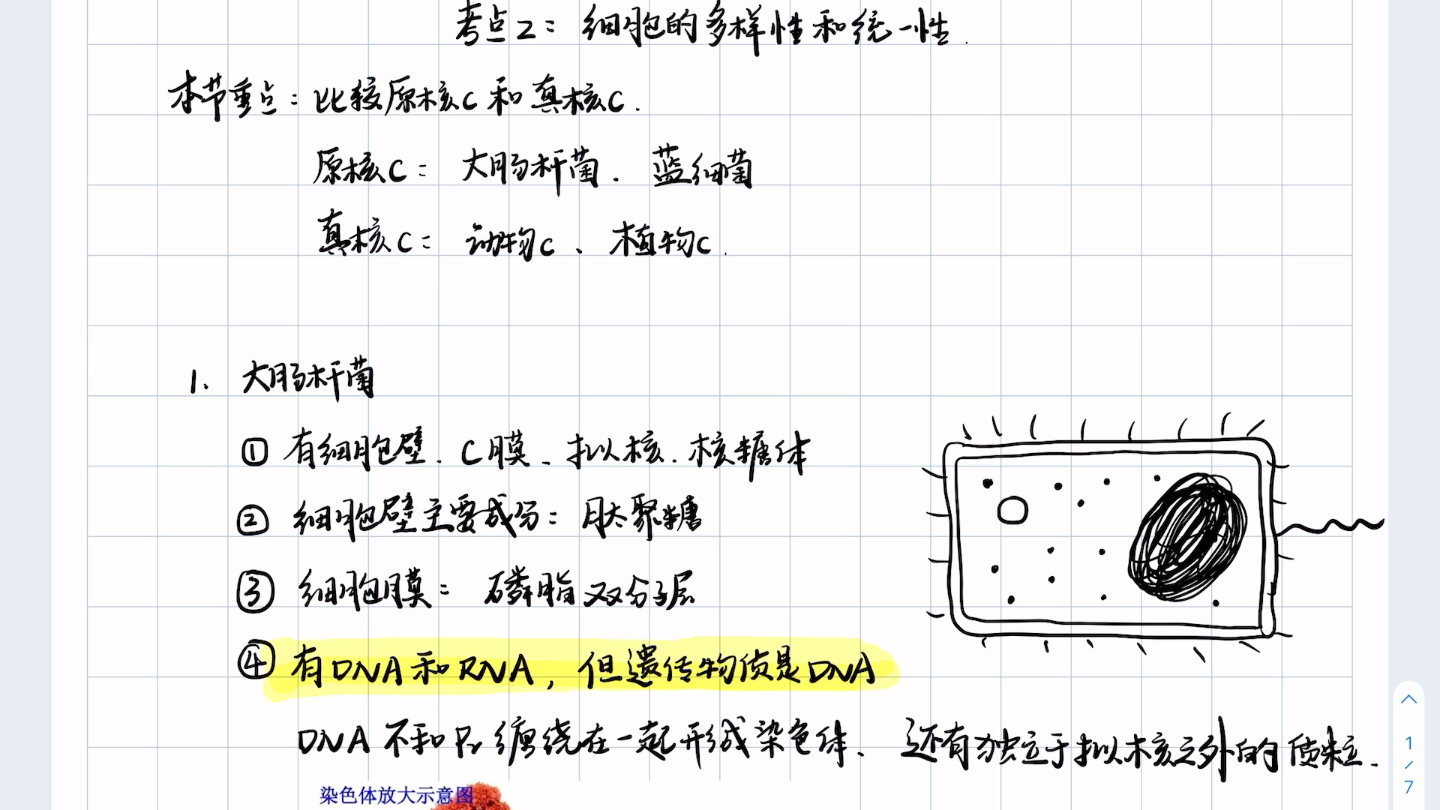 考点2：细胞的多样性和统一性.
本节重点：比较原核C和真核C.
原核C：大肠杆菌.蓝细菌
真核C：动物C、植物C.
1、大肠杆菌
① 有细胞壁.C膜、拟核.核糖体
② 细胞壁主要成分：肽聚糖
③ 细胞膜：磷脂双分子层
④ 有DNA和RNA，但遗传物质是DNA
DNA不和Pr缠绕在一起形成染色体、还有独立于拟核之外的质粒.
染色体放大示意图
1/7